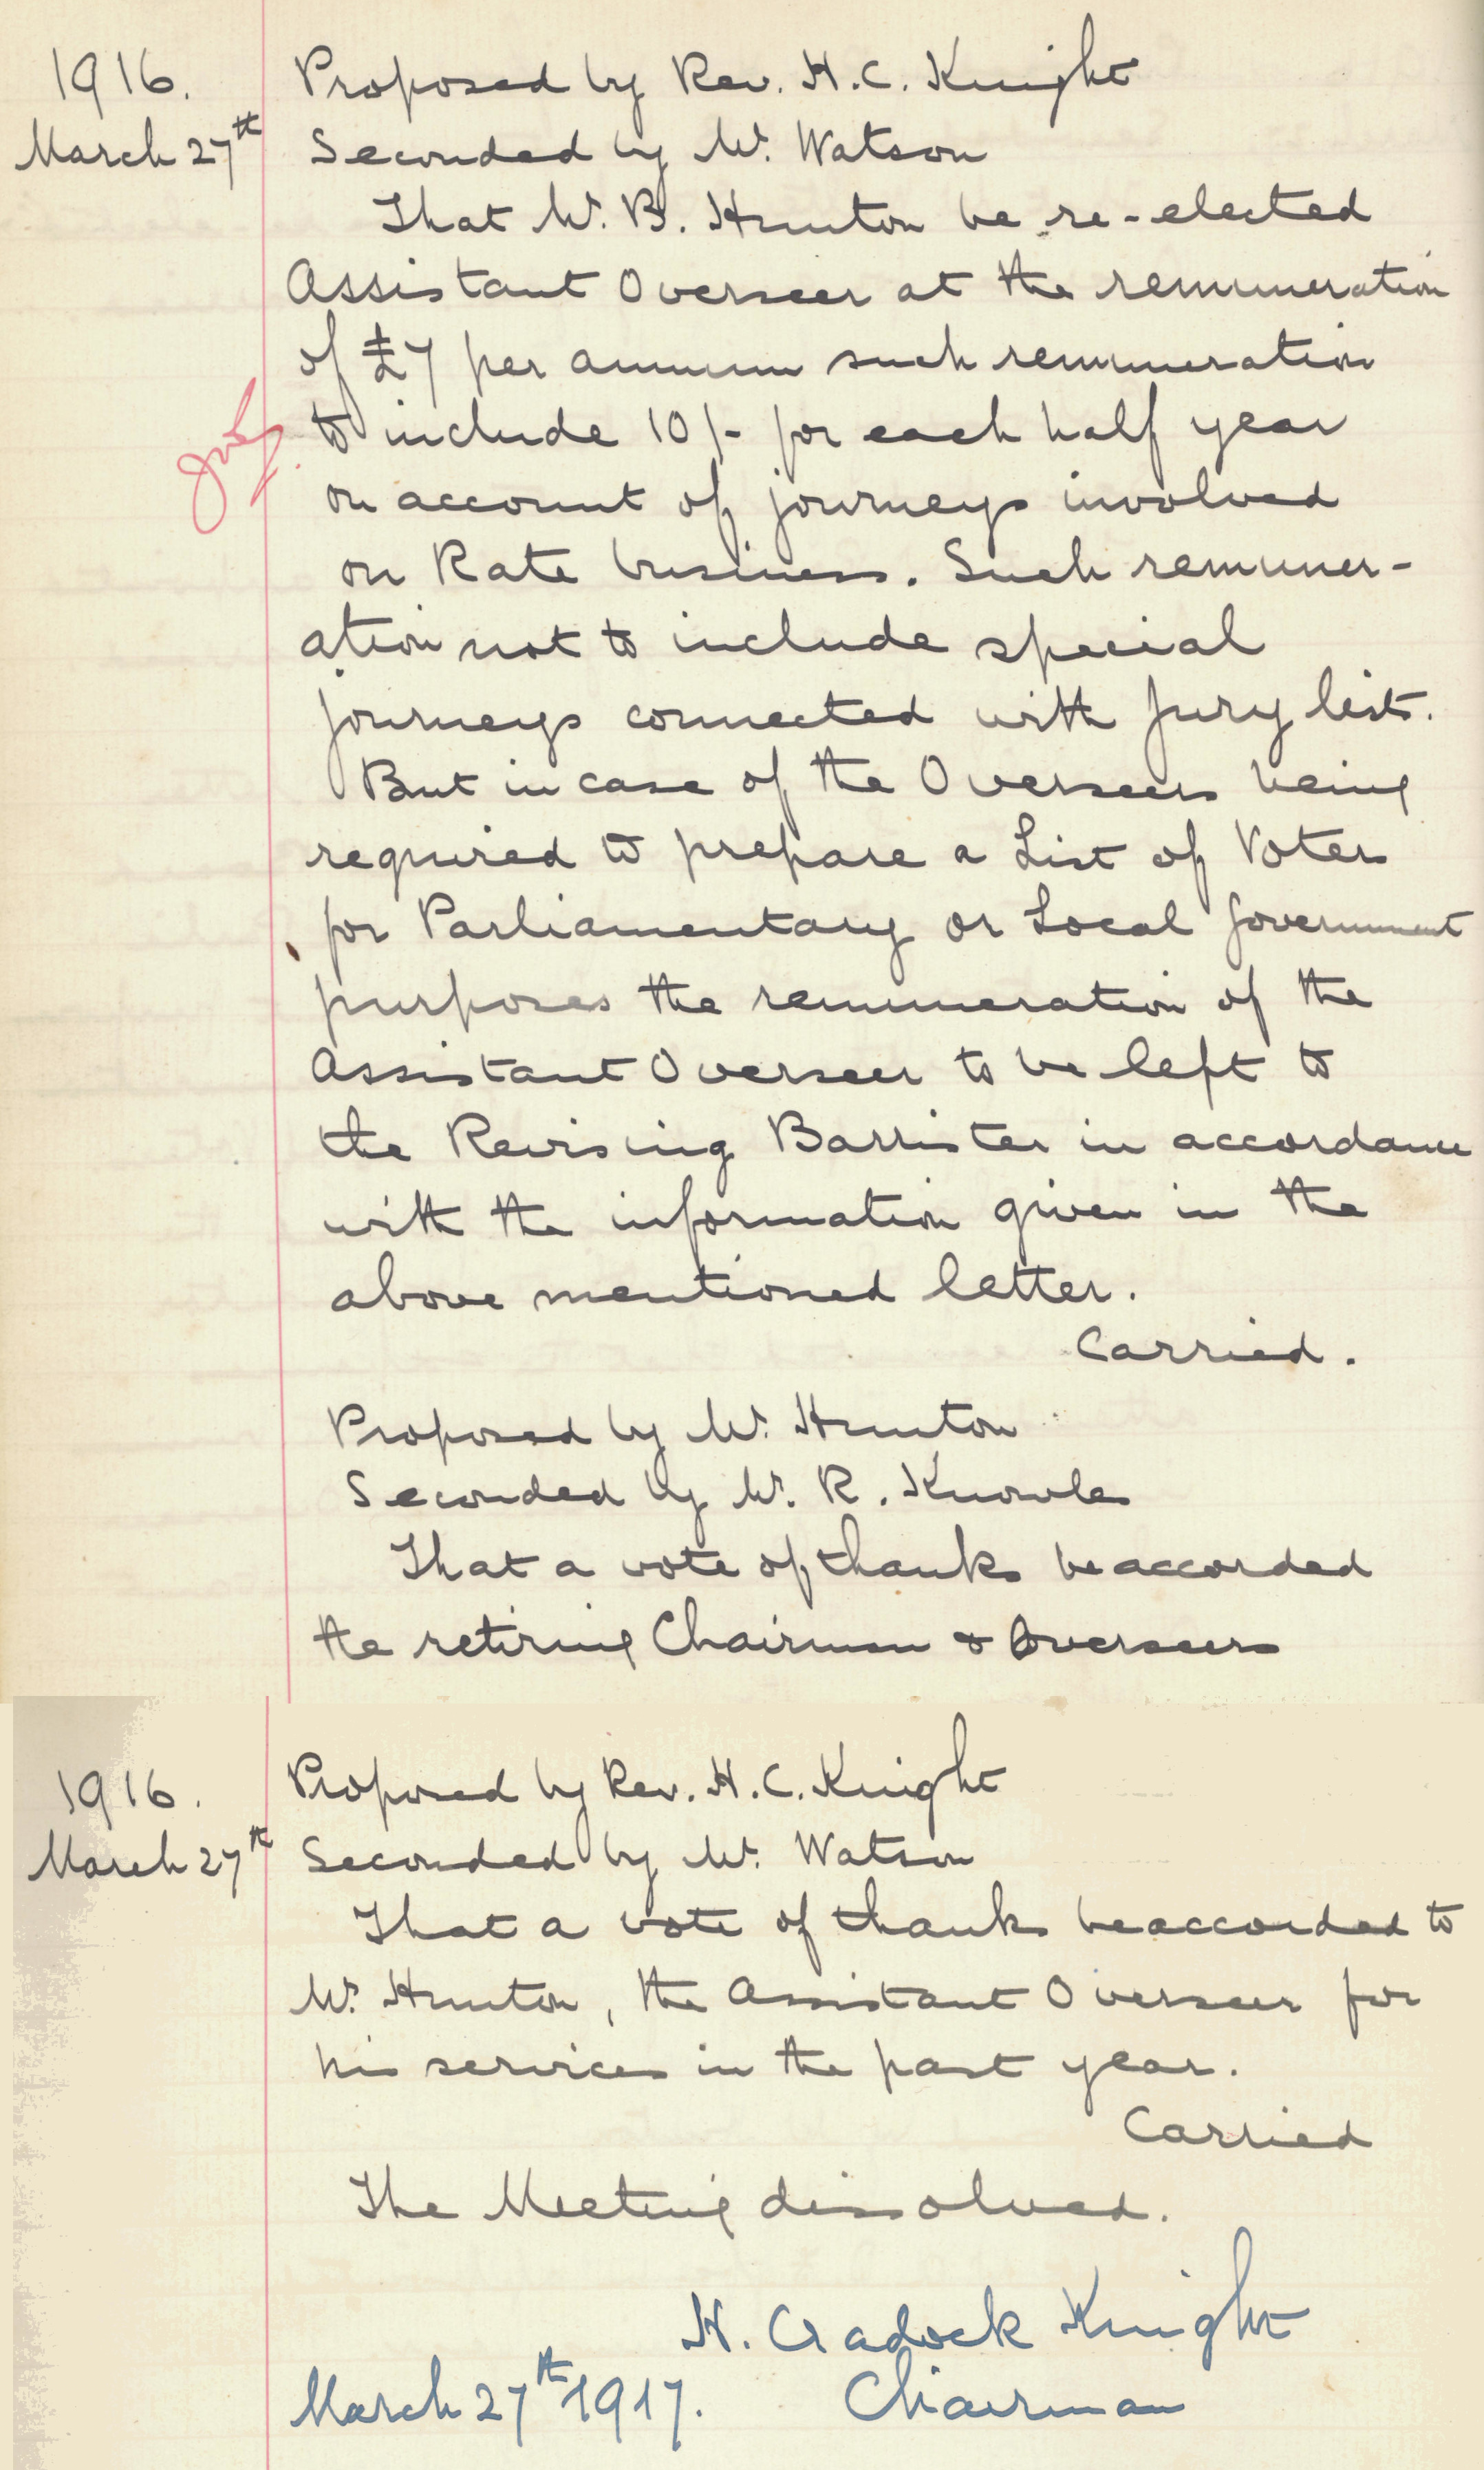 1916.
March 27th
Proposed by Rev. H. C. Knight
Seconded by Mr. Watson
That Mr. B. Hunton be re-elected
Assistant Overseer at the remuneration
of £7 per annum such remuneration
to include 10/- for each half year
on account of journeys involved
on Rate business. Such remuner-
ation not to include special
journeys connected with Jury lists.
But in case of the Overseers being
required to prepare a List of Voters
for Parliamentary or Local Government
purposes the remuneration of the
Assistant Overseer to be left to
the Revising Barrister in accordance
with the information given in the
above mentioned letter.
Carried.
Proposed by Mr. Hunton
Seconded by Mr. R. Knowles
That a vote of thanks be accorded
the retiring Chairman & Overseers
1916.
March 27th
Proposed by Rev. H. C. Knight
Seconded by Mr. Watson
That a vote of thanks be accorded to
Mr. Hunton, the Assistant Overseer for
his services in the past year.
Carried
The Meeting dissolved.
H. Cradock Knight
March 27th 1917. Chairman